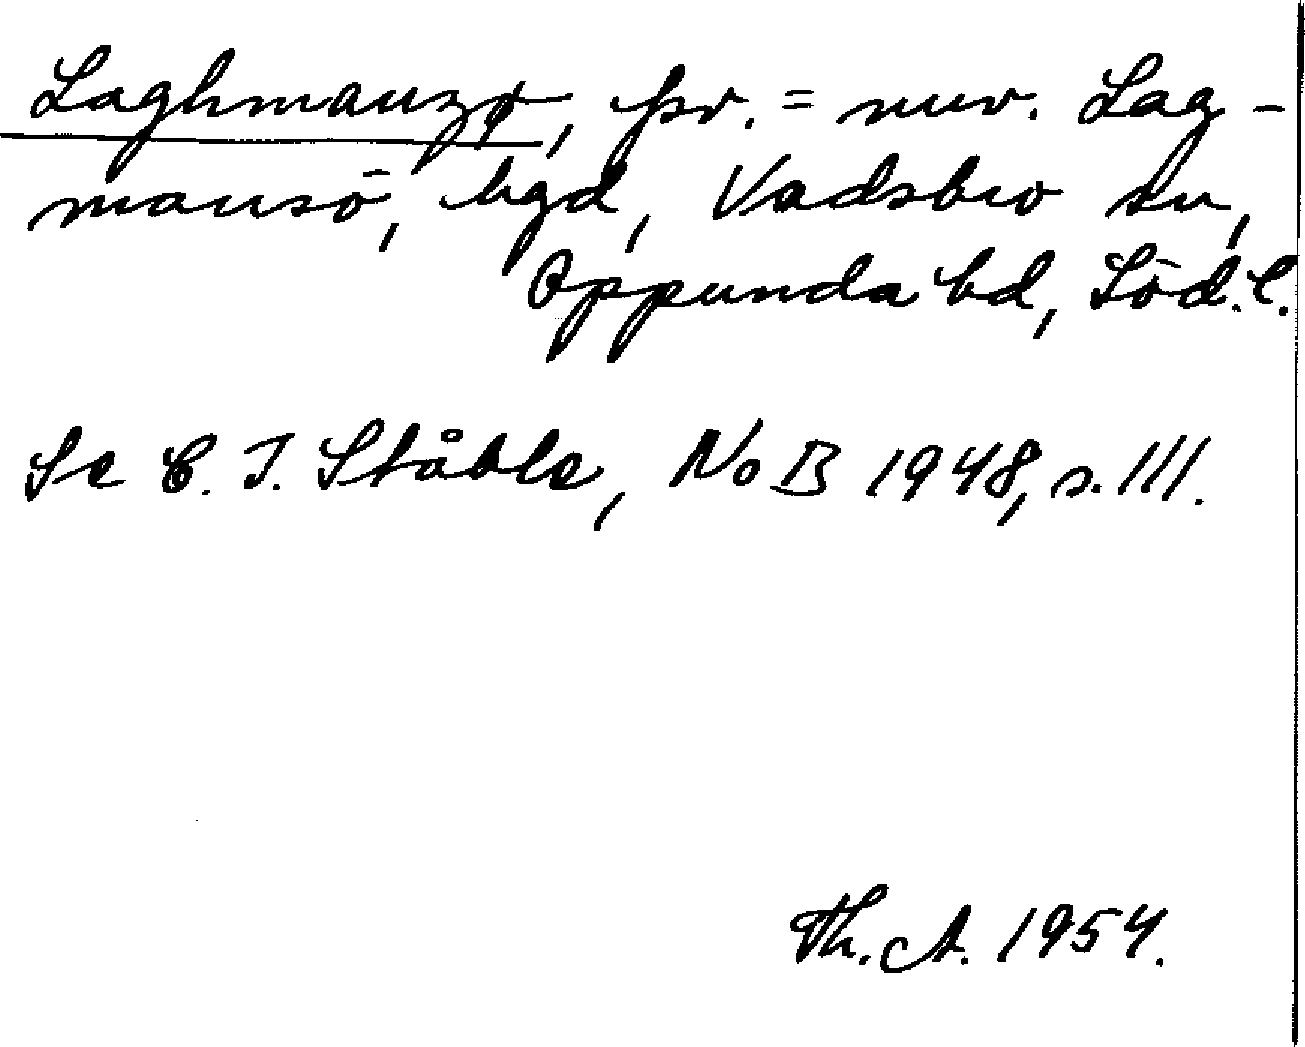 Laghmanzø, fsv. = nuv. Lag-
mansö, hgd, Vadsbro sn,
Oppunda hd, Söd. l.
Se C. I. Ståhle, NoB 1948, s. 111.
Th. A. 1954.